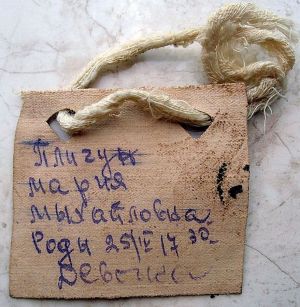 Плигун
мария
михайловна
Роды 25/IV 17 30
Девочка